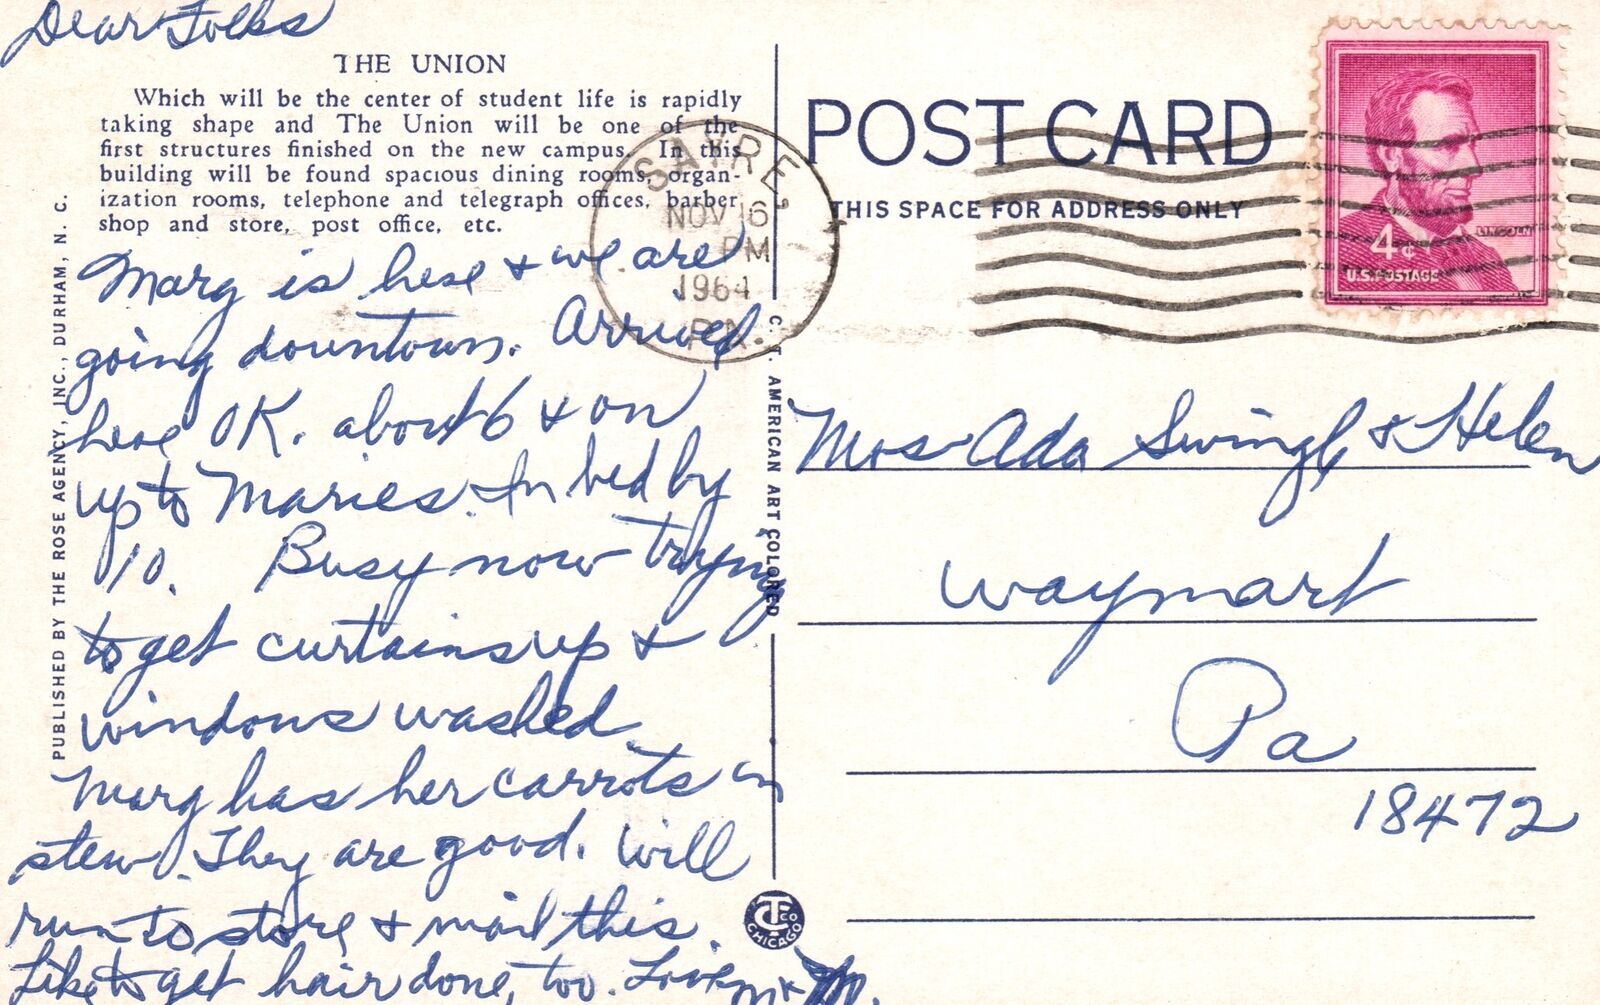 Dear Folks
THE UNION
Which will be the center of student life is rapidly
taking shape and The Union will be one of the
first structures finished on the new campus. In this
building will be found spacious dining rooms, organ-
ization rooms, telephone and telegraph offices, barber
shop and store, post office, etc.
Marg is here & we are
going downtown. Arrived
here OK. about 6 & on
up to Maries. In bed by
10. Busy now trying
to get curtains up &
windows washed.
Marg has her carrots in
stew. They are good. Will
run to store & mail this.
Like to get hair done, too. Love M & M.
PUBLISHED BY THE ROSE AGENCY, INC., DURHAM, N. C.
C. T. AMERICAN ART COLORED
CT CO
CHICAGO
POST CARD
THIS SPACE FOR ADDRESS ONLY
SAYRE,
NOV 16
PM
1964
PA.
4¢
LINCOLN
U.S. POSTAGE
Mrs Ada Swingle & Helen
Waymart
Pa
18472